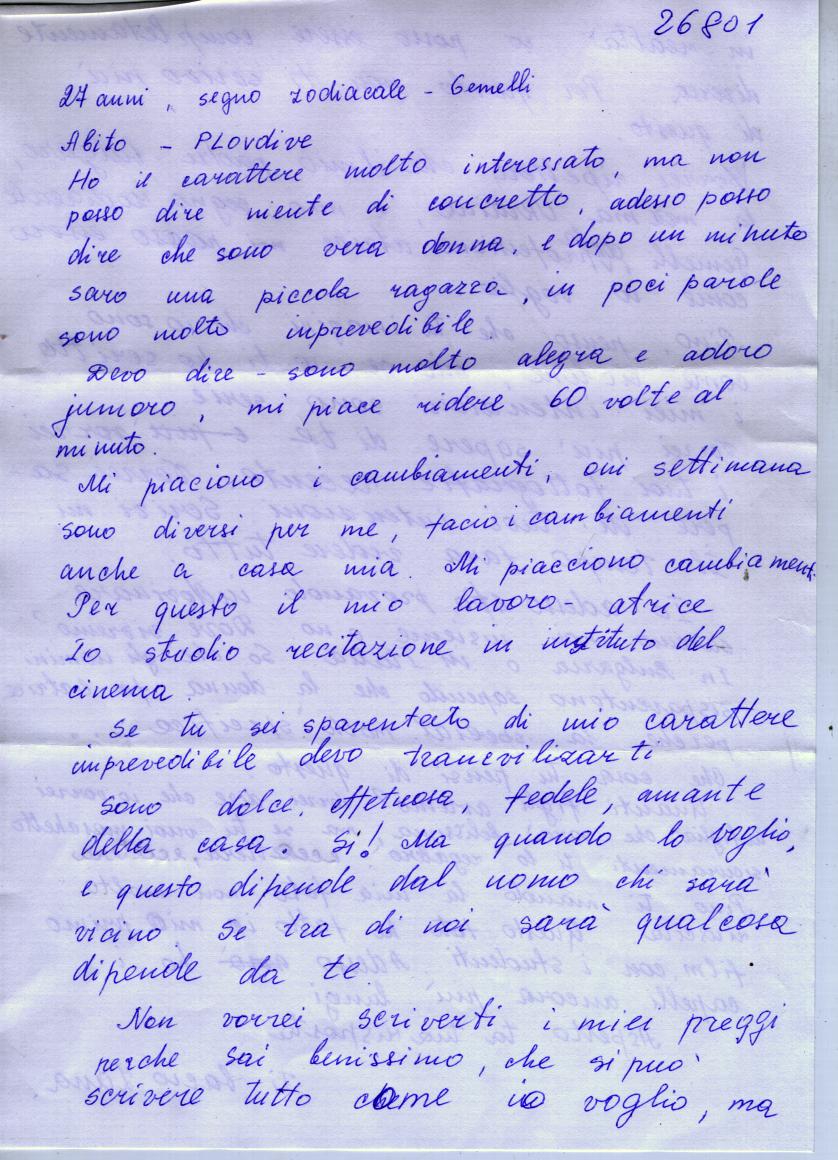 26801
27 anni, segno zodiacale - Gemelli
Abito - PLovdive
Ho il carattere molto interessato, ma non
posso dire niente di concretto, adesso posso
dire che sono vera donna, e dopo un minuto
saro una piccola ragazza, in poci parole
sono molto inprevedibile.
Devo dire - sono molto alegra e adoro
jumoro, mi piace ridere 60 volte al
minuto.
Mi piaciono i cambiamenti, oni settimana
sono diversi per me, facio i cambiamenti
anche a casa mia. Mi piacciono cambiamenti.
Per questo il mio lavoro - atrice
Io studio recitazione in instituto del
cinema.
Se tu sei spaventato di mio carattere
imprevedibile devo trancvilizarti
Sono dolce, effetuosa, fedele, amante
della casa. Si! Ma quando lo voglio,
e questo dipende dal uomo chi sarà
vicino. Se tra di noi sarà qualcosa
dipende da te.
Non vorrei scriverti i miei preggi
perche sai benissimo, che si può
scrivere tutto come io voglio, ma